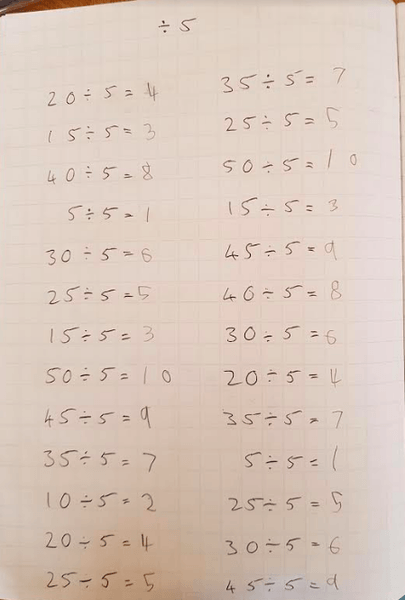 ÷ 5
20 ÷ 5 = 4
15 ÷ 5 = 3
40 ÷ 5 = 8
5 ÷ 5 = 1
30 ÷ 5 = 6
25 ÷ 5 = 5
15 ÷ 5 = 3
50 ÷ 5 = 10
45 ÷ 5 = 9
35 ÷ 5 = 7
10 ÷ 5 = 2
20 ÷ 5 = 4
25 ÷ 5 = 5
35 ÷ 5 = 7
25 ÷ 5 = 5
50 ÷ 5 = 10
15 ÷ 5 = 3
45 ÷ 5 = 9
40 ÷ 5 = 8
30 ÷ 5 = 6
20 ÷ 5 = 4
35 ÷ 5 = 7
5 ÷ 5 = 1
25 ÷ 5 = 5
30 ÷ 5 = 6
45 ÷ 5 = 9